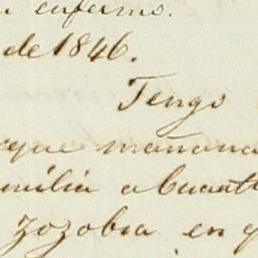 enfermo.
de 1846.
Tengo
que mañana
familia abuanto
zozobra en q